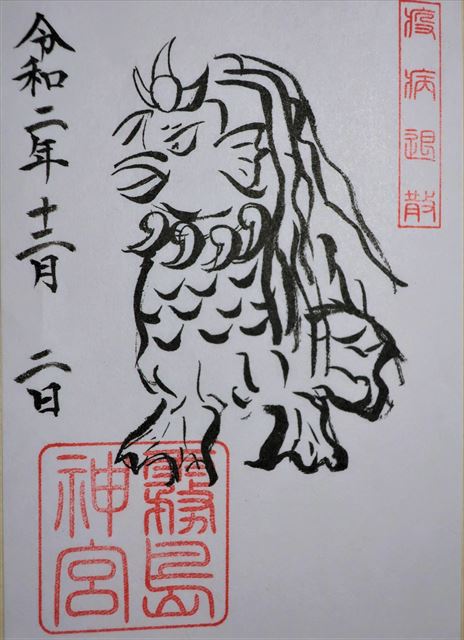 疫病退散
令和二年十二月 二日
霧島
神宮